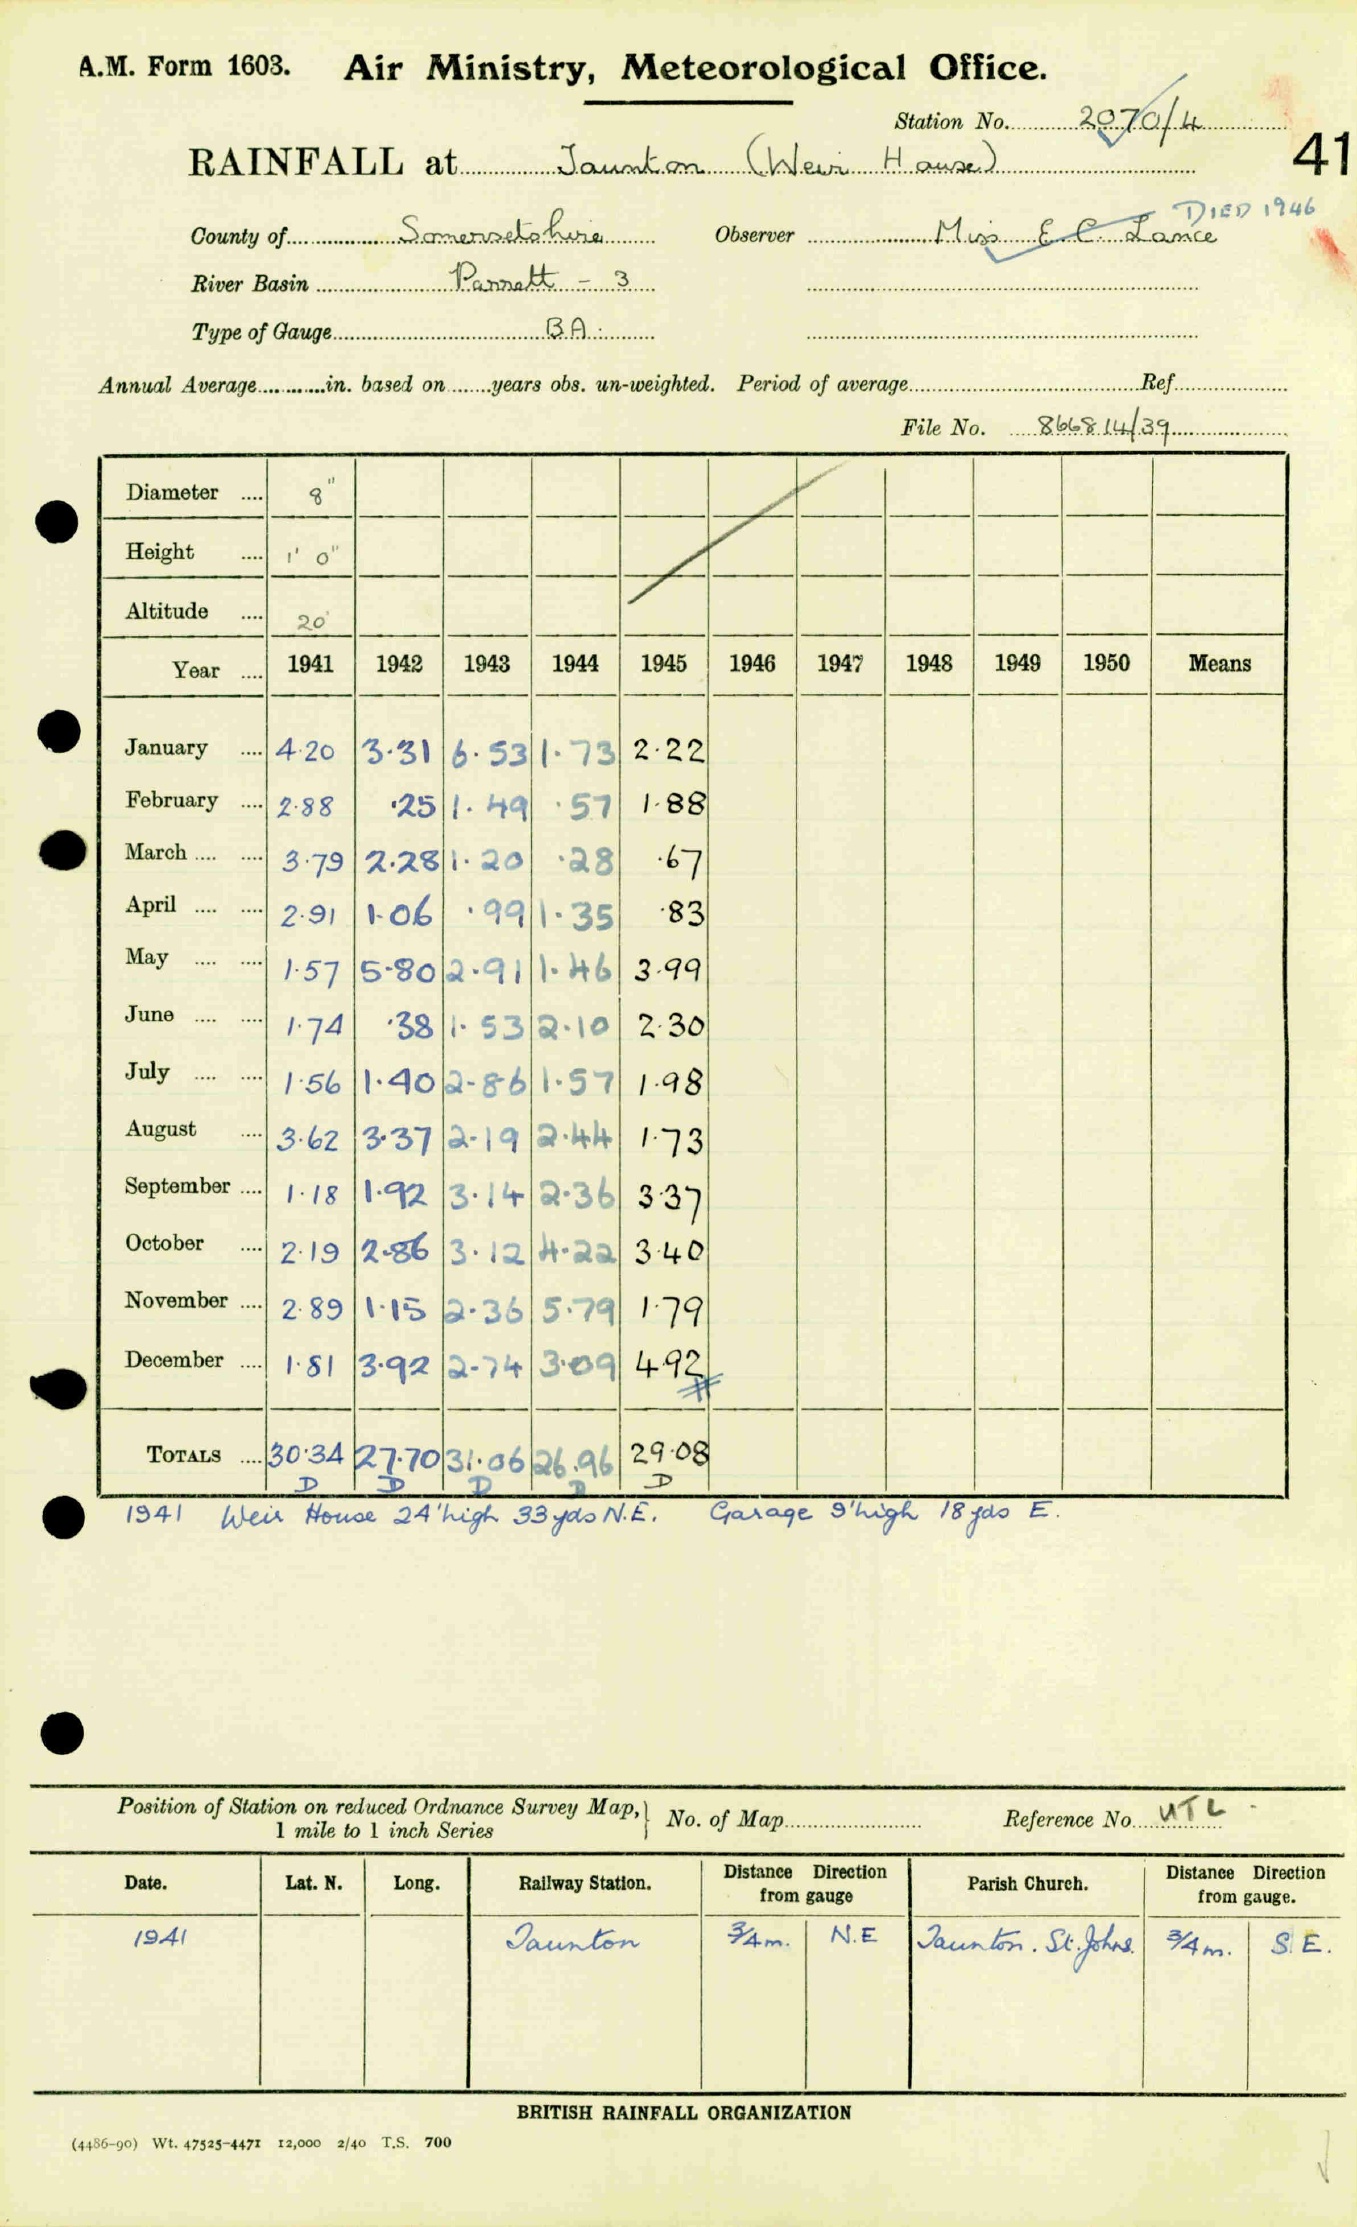 A.M. Form 1603. Air Ministry, Meteorological Office.
Station No. 2070/4
41
RAINFALL at Taunton (Weir House)
DIED 1946
County of Somersetshire Observer Miss E C. Lance
River Basin Parrett - 3
Type of Gauge BA.
Annual Average in. based on years obs. un-weighted. Period of average Ref
File No. 866814/39
Diameter .... 8"
Height .... 1' 0"
Altitude .... 20'
Year .... 1941 1942 1943 1944 1945 1946 1947 1948 1949 1950 Means
January .... 4.20 3.31 6.53 1.73 2.22
February .... 2.88 .25 1.49 .57 1.88
March .... .... 3.79 2.28 1.20 .28 .67
April .... .... 2.91 1.06 .99 1.35 .83
May .... .... 1.57 5.80 2.91 1.46 3.99
June .... .... 1.74 .38 1.53 2.10 2.30
July .... .... 1.56 1.40 2.86 1.57 1.98
August .... 3.62 3.37 2.19 2.44 1.73
September .... 1.18 1.92 3.14 2.36 3.37
October .... 2.19 2.86 3.12 4.22 3.40
November .... 2.89 1.15 2.36 5.79 1.79
December .... 1.81 3.92 2.74 3.09 4.92
TOTALS .... 30.34 27.70 31.06 26.96 29.08
D D D D D
1941 Weir House 24' high 33 yds N.E. Garage 9' high 18 yds E.
Position of Station on reduced Ordnance Survey Map, No. of Map Reference No. UTL
1 mile to 1 inch Series
Date. Lat. N. Long. Railway Station. Distance Direction from gauge Parish Church. Distance Direction from gauge.
1941 Taunton 3/4 m. N.E Taunton. St. Johns. 3/4 m. S.E.
BRITISH RAINFALL ORGANIZATION
(4486-90) Wt. 47525-4471 12,000 2/40 T.S. 700